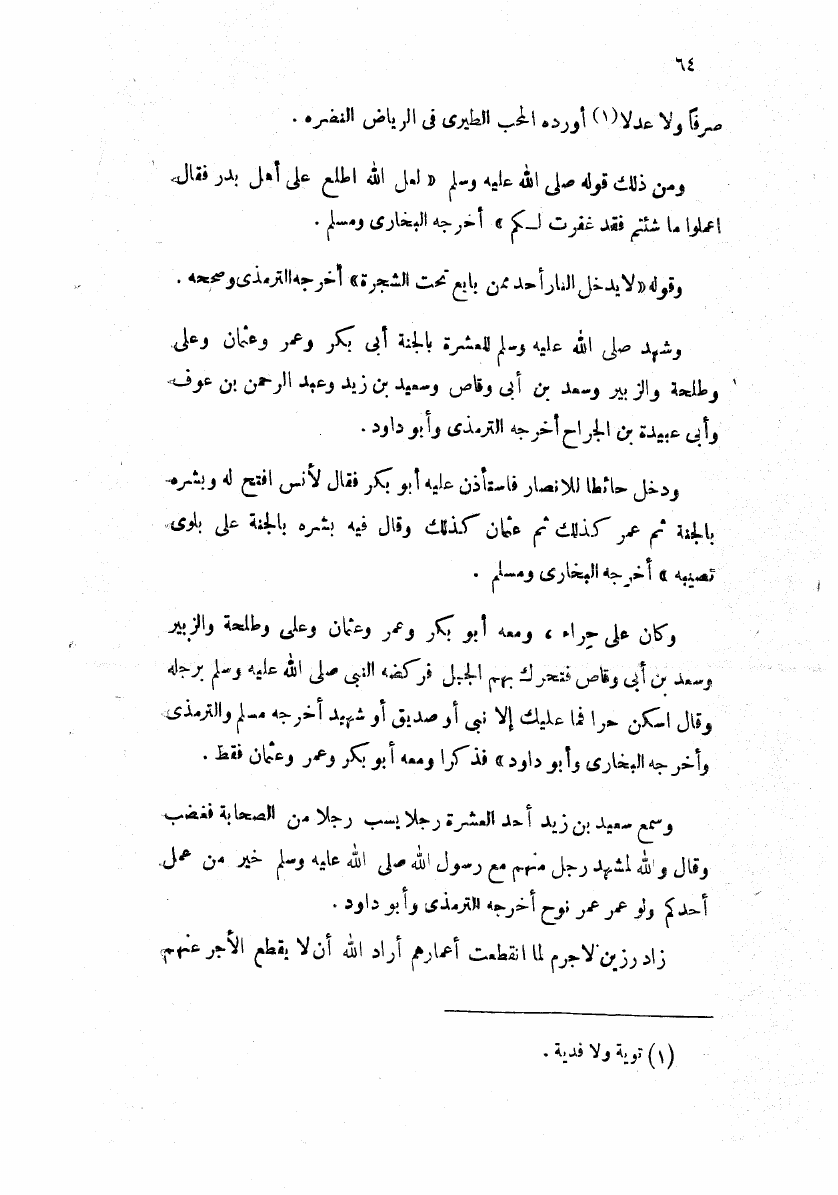 ٦٤
صرفاً ولا عدلا(١) أورده المحب الطبرى فى الرياض النضره .
ومن ذلك قوله صلى الله عليه وسلم « لعل الله اطلع على أهل بدر فقال
اعملوا ما شئتم فقد غفرت لـكم » أخرجه البخارى ومسلم .
وقوله « لا يدخل النار أحد ممن بايع تحت الشجرة » أخرجه الترمذى وصححه .
وشهد صلى الله عليه وسلم للعشرة بالجنة أبى بكر وعمر وعثمان وعلى
وطلحة والزبير وسعد بن أبى وقاص وسعيد بن زيد وعبد الرحمن بن عوف
وأبى عبيدة بن الجراح أخرجه الترمذى وأبو داود .
ودخل حائطا للانصار فاستأذن عليه أبو بكر فقال لأنس افتح له وبشره
بالجنة ثم عمر كذلك ثم عثمان كذلك وقال فيه بشره بالجنة على بلوى
تصيبه » أخرجه البخارى ومسلم .
وكان على حِراء ، ومعه أبو بكر وعمر وعثمان وعلى وطلحة والزبير
وسعد بن أبى وقاص فتحرك بهم الجبل فركضه النبى صلى الله عليه وسلم برجله
وقال اسكن حرا فما عليك إلا نبى أو صديق أو شهيد أخرجه مسلم والترمذى
وأخرجه البخارى وأبو داود » فذكرا ومعه أبو بكر وعمر وعثمان فقط .
وسمع سعيد بن زيد أحد العشرة رجلا يسب رجلا من الصحابة فغضب
وقال والله لمشهد رجل منهم مع رسول الله صلى الله عليه وسلم خير من عمل
أحدكم ولو عمر عمر نوح أخرجه الترمذى وأبو داود .
زاد رزين لاجرم لما انقطعت أعمارهم أراد الله أن لا يقطع الأجر عنهم
(١) توبة ولا فدية .